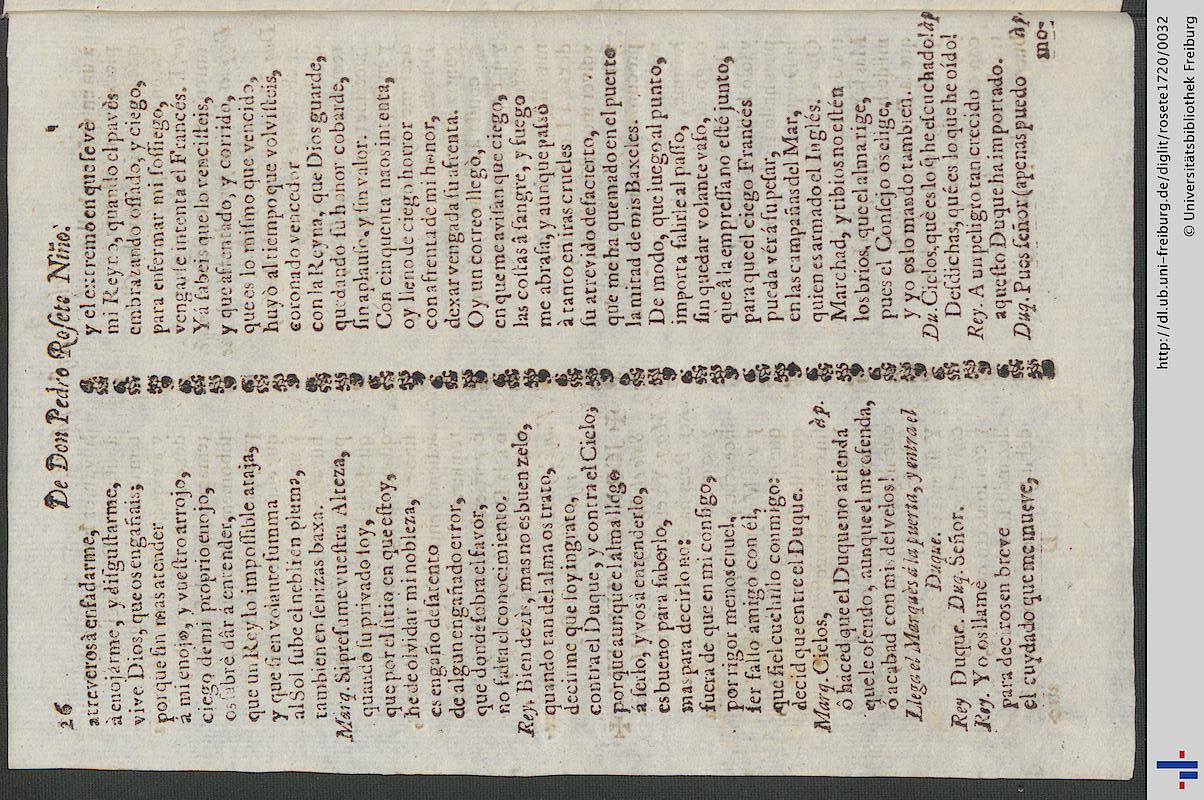 26
De Don Pedro Rosete Niño.
atreveros à enfadarme,
à enojarme, y disgustarme,
vive Dios, que os engañais;
porque sin mas atender
a mi enojo, y vuestro arrojo,
ciego de mi proprio enojo,
os sabrè dàr à entender,
que un Rey lo impossible ataja,
y que si en volante suma
al Sol sube el nebli en pluma,
tambien en senizas baxa.
Marq. Si presume vuestra Alteza,
quando su privado soy,
que por el sitio en que estoy,
he de olvidar mi nobleza,
es engaño desatento
de algun engañado error,
que donde sobra el favor,
no falta el conocimiento.
Rey. Bien dezis, mas no es buen zelo,
quando tan del alma os trato,
decirme que soy ingrato,
contra el Duque, y contra el Cielo;
porque aunque el alma llegò
a serlo, y vos à entenderlo,
es bueno para saberlo,
mas para decirlo no:
fuera de que en mi consigo,
por rigor menos cruel,
ser falso amigo con èl,
que fiel cuchillo conmigo:
decid que entre el Duque.
Marq. Cielos, àp.
ò haced que el Duque no atienda
que le ofendo, aunque el me ofenda,
ò acabad con mis desvelos!
Llega el Marquès à la puerta, y entra el
Duque.
Rey Duque. Duq. Señor.
Rey. Yo os llamè
para deciros en breve
el cuydado que me mueve,
y el extremo en que se vè
mi Reyno, quando el pavès
embrazando ossado, y ciego,
para enfermar mi sossiego,
vengarse intenta el Francès.
Yà sabeis que lo vencisteis,
y que afrentado, y corrido,
que es lo mismo que vencido,
huyò al tiempo que volvisteis,
coronado vencedor
con la Reyna, que Dios guarde,
quedando su honor cobarde,
sin aplauso, y sin valor.
Con cinquenta naos intenta,
oy lleno de ciego horror
con afrenta de mi honor,
dexar vengada su afrenta.
Oy un correo llegò,
en que me avisan que ciego,
las costas à sangre, y fuego
me abrasa, y aunque passò
à tanto en iras crueles
su atrevido desacierto,
que me ha quemado en el puerto
la mitad de mis Baxeles.
De modo, que luego al punto,
importa salirle al passo,
sin quedar volante vaso,
que à la empressa no estè junto,
para que el ciego Francès
pueda vèr à su pesar,
en las campañas del Mar,
quien es armado el Inglès.
Marchad, y tibios no estèn
los brios, que el alma rige,
pues el Consejo os elige,
y yo os lo mando tambien.
Du. Cielos, què es lo q̃ he escuchado! àp
Desdichas, què es lo que he oìdo!
Rey. A un peligro tan crecido
aquesto Duque ha importado.
Duq. Pues señor (apenas puedo àp.
mo-
http://dl.ub.uni-freiburg.de/diglit/rosete1720/0032
© Universitätsbibliothek Freiburg